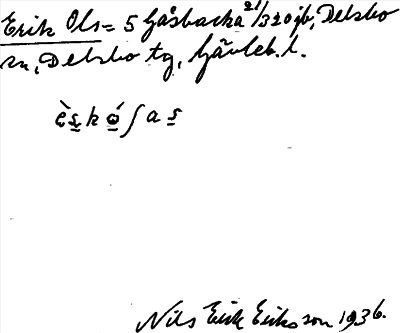 Erik Ols = 5 Gåsbacka 21/320 jb, Delsbo
sn, Delsbo tg, Gävleb. l.
è s̲ k ó̲ ʃ a s̲
Nils Erik Eriksson 1936.